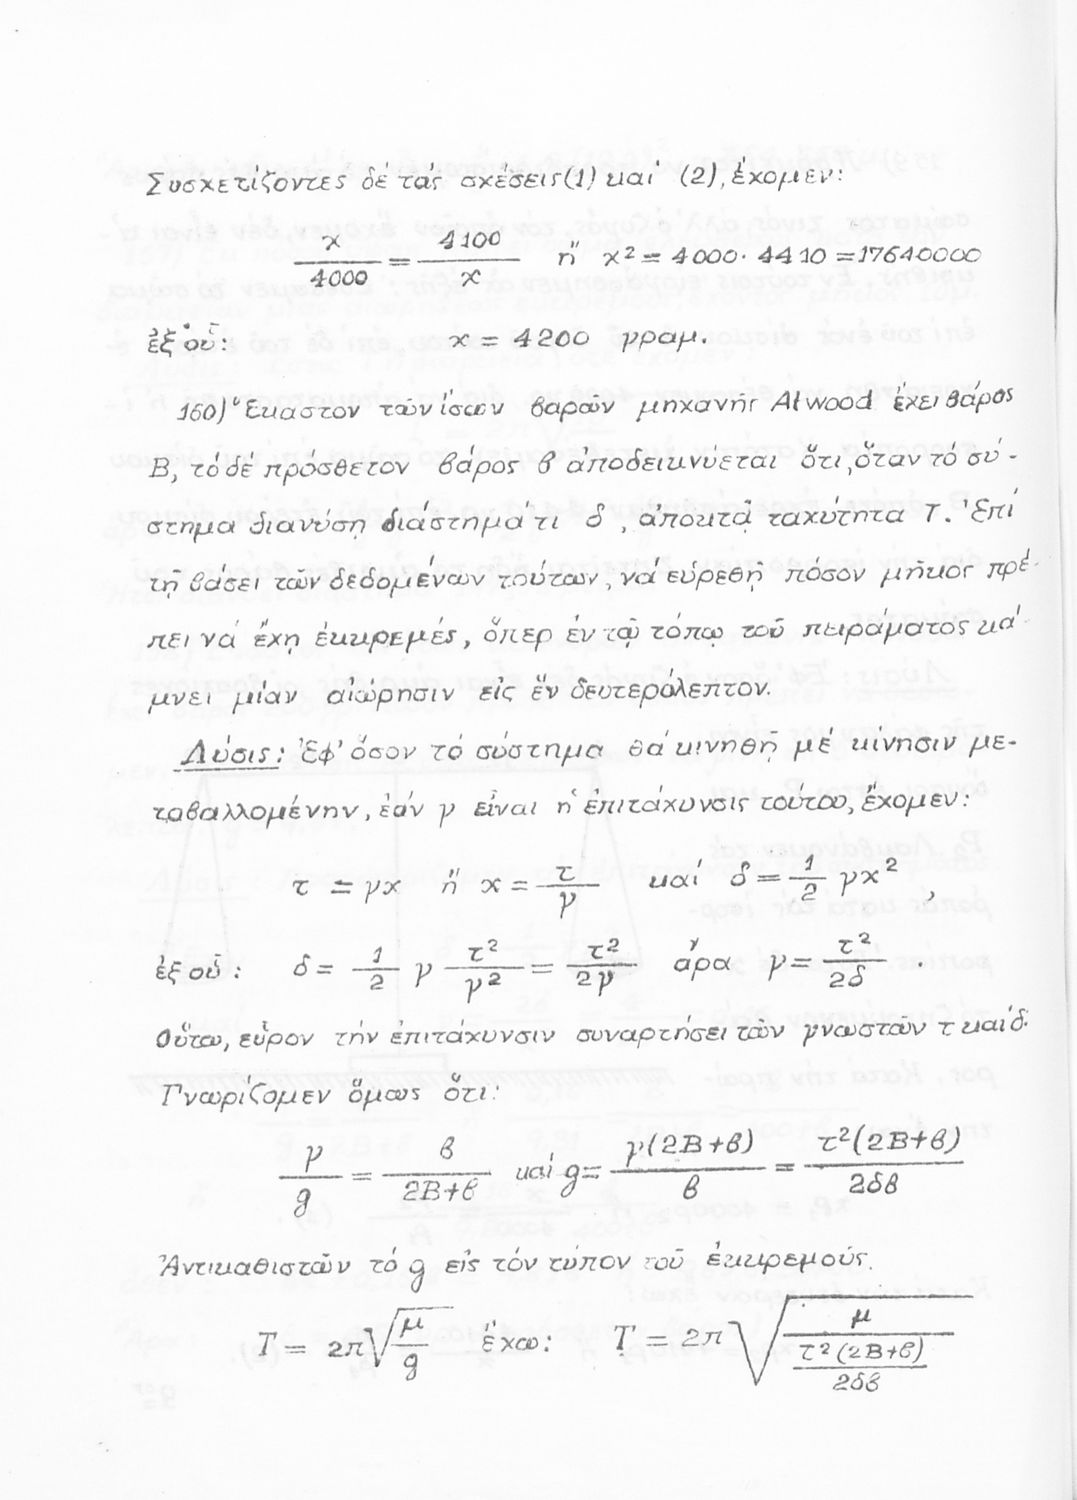 Συσχετίζοντες δέ τάς σχέσεις (1) καί (2), ἔχομεν:
x/4000 = 4100/x ἤ x² = 4000· 4410 = 17640000
ἐξ οὗ: x = 4200 γραμ.
160) Ἕκαστον τῶν ἴσων βαρῶν μηχανῆς Atwood ἔχει βάρος
Β, τό δέ πρόσθετον βάρος β ἀποδεικνύεται ὅτι, ὅταν τό σύ-
στημα διανύσῃ διάστημά τι δ, ἀποκτᾷ ταχύτητα τ. Ἐπί
τῇ βάσει τῶν δεδομένων τούτων, νά εὑρεθῇ πόσον μῆκος πρέ-
πει νά ἔχῃ ἐκκρεμές, ὅπερ ἐν τῷ τόπῳ τοῦ πειράματος κά-
μνει μίαν αἰώρησιν εἰς ἕν δευτερόλεπτον.
Λύσις: Ἐφ' ὅσον τό σύστημα θά κινηθῇ μέ κίνησιν με-
ταβαλλομένην, ἐάν γ εἶναι ἡ ἐπιτάχυνσις τούτου, ἔχομεν:
τ = γx ἤ x = τ/γ καί δ = 1/2 γx² ,
ἐξ οὗ: δ = 1/2 γ τ²/γ² = τ²/2γ ἄρα γ = τ²/2δ .
Οὕτω, εὗρον τήν ἐπιτάχυνσιν συναρτήσει τῶν γνωστῶν τ καί δ.
Γνωρίζομεν ὅμως ὅτι:
γ/g = β/(2Β+β) καί g = γ(2Β+β)/β = τ²(2Β+β)/2δβ
Ἀντικαθιστῶν τό g εἰς τόν τύπον τοῦ ἐκκρεμοῦς.
T = 2π√(μ/g) ἔχω: T = 2π√(μ/(τ²(2Β+β)/2δβ))